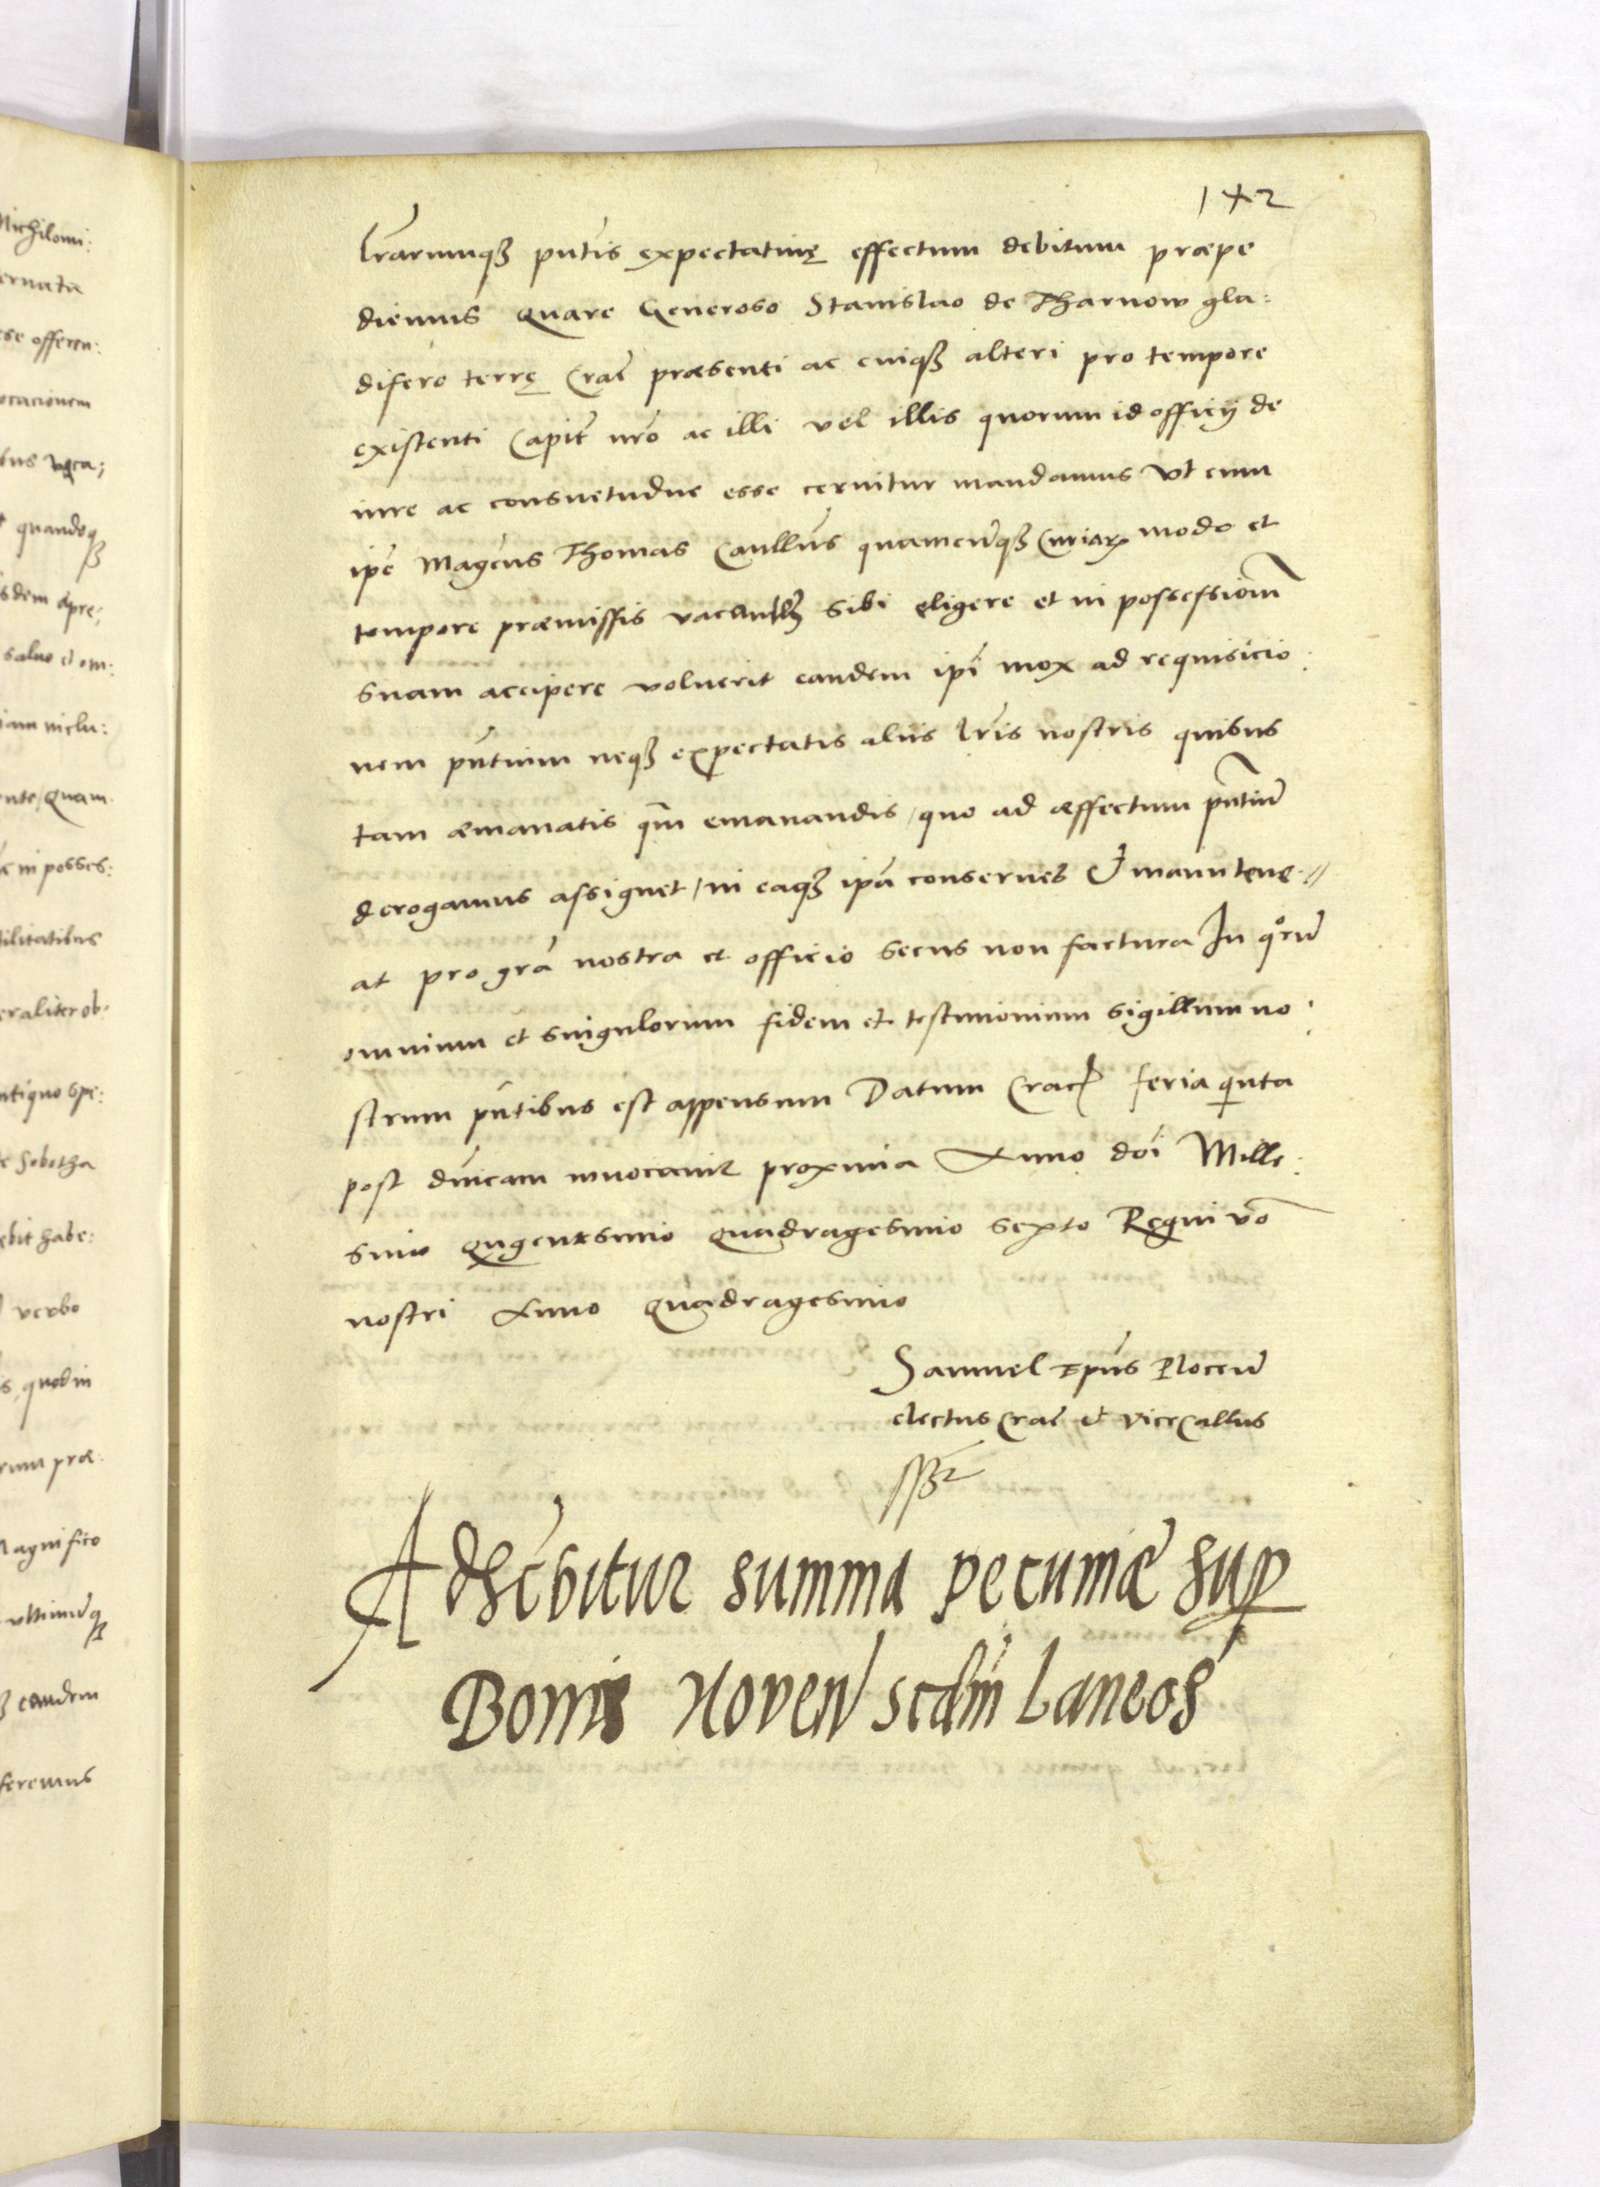 142
lrarumq putis expectative effectum debitum præpe
dienus quare Generoso Stanislao de Tharnow gla:
difero terrę Crac præsenti ac cuiq alteri pro tempore
existenti Capit nro ac illi vel illis quorum id officij de
iure ac consuetudine esse cernitur mandamus vt cum
ipe Magcus Thomas Canllus quamcunq Curiar modo et
tempore præmissis vacan sibi eligere et in possessionem
suam accipere voluerit eandem ipi mox ad requisicio:
nem putium neq expectatis aliis lris nostris quibus
tam æmanatis qm emanandis, quo ad æffectum putiu
derogamus assignet, in eaq ipm conservet et manutene//
at pro gra nostra et officio secus non factura In quoru
omnium et singulorum fidem et testimonium sigillum no:
strum putibus est appensum Datum Crac feria quta
post dnicam invocavit proxima Anno doi Mille:
simo qngentesimo quadragesimo sexto Regni vo
nostri Anno quadragesimo
Samuel Epus Plocen
electus Crac et ViceCallus
sspt
Adscbitur summa pecuniæ sup
Bonis Noven scdm Laneos
Nichilomi:
ernata
ese offeren:
ocacionem
bus vaca;
quandoq
sdem apre;
salvo et om:
iam inclu:
nte, quam
in posses:
tilitatibus
eraliter ob:
ntiquo spe:
de Sobotha
ebit habe:
verbo
s, quod in
rum præ:
Magnifico
vltimuq
eandem
feremus